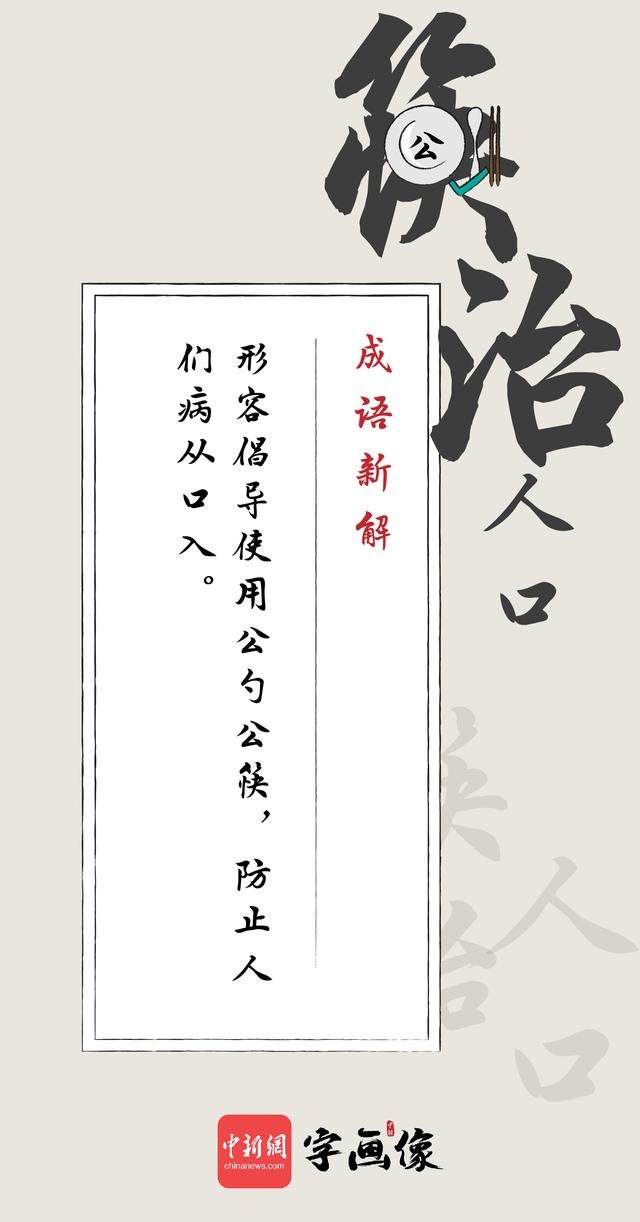 筷治
人口
公
成语新解
形容倡导使用公勺公筷，防止人
们病从口入。
筷治
人口
中新網
chinanews.com
字画像